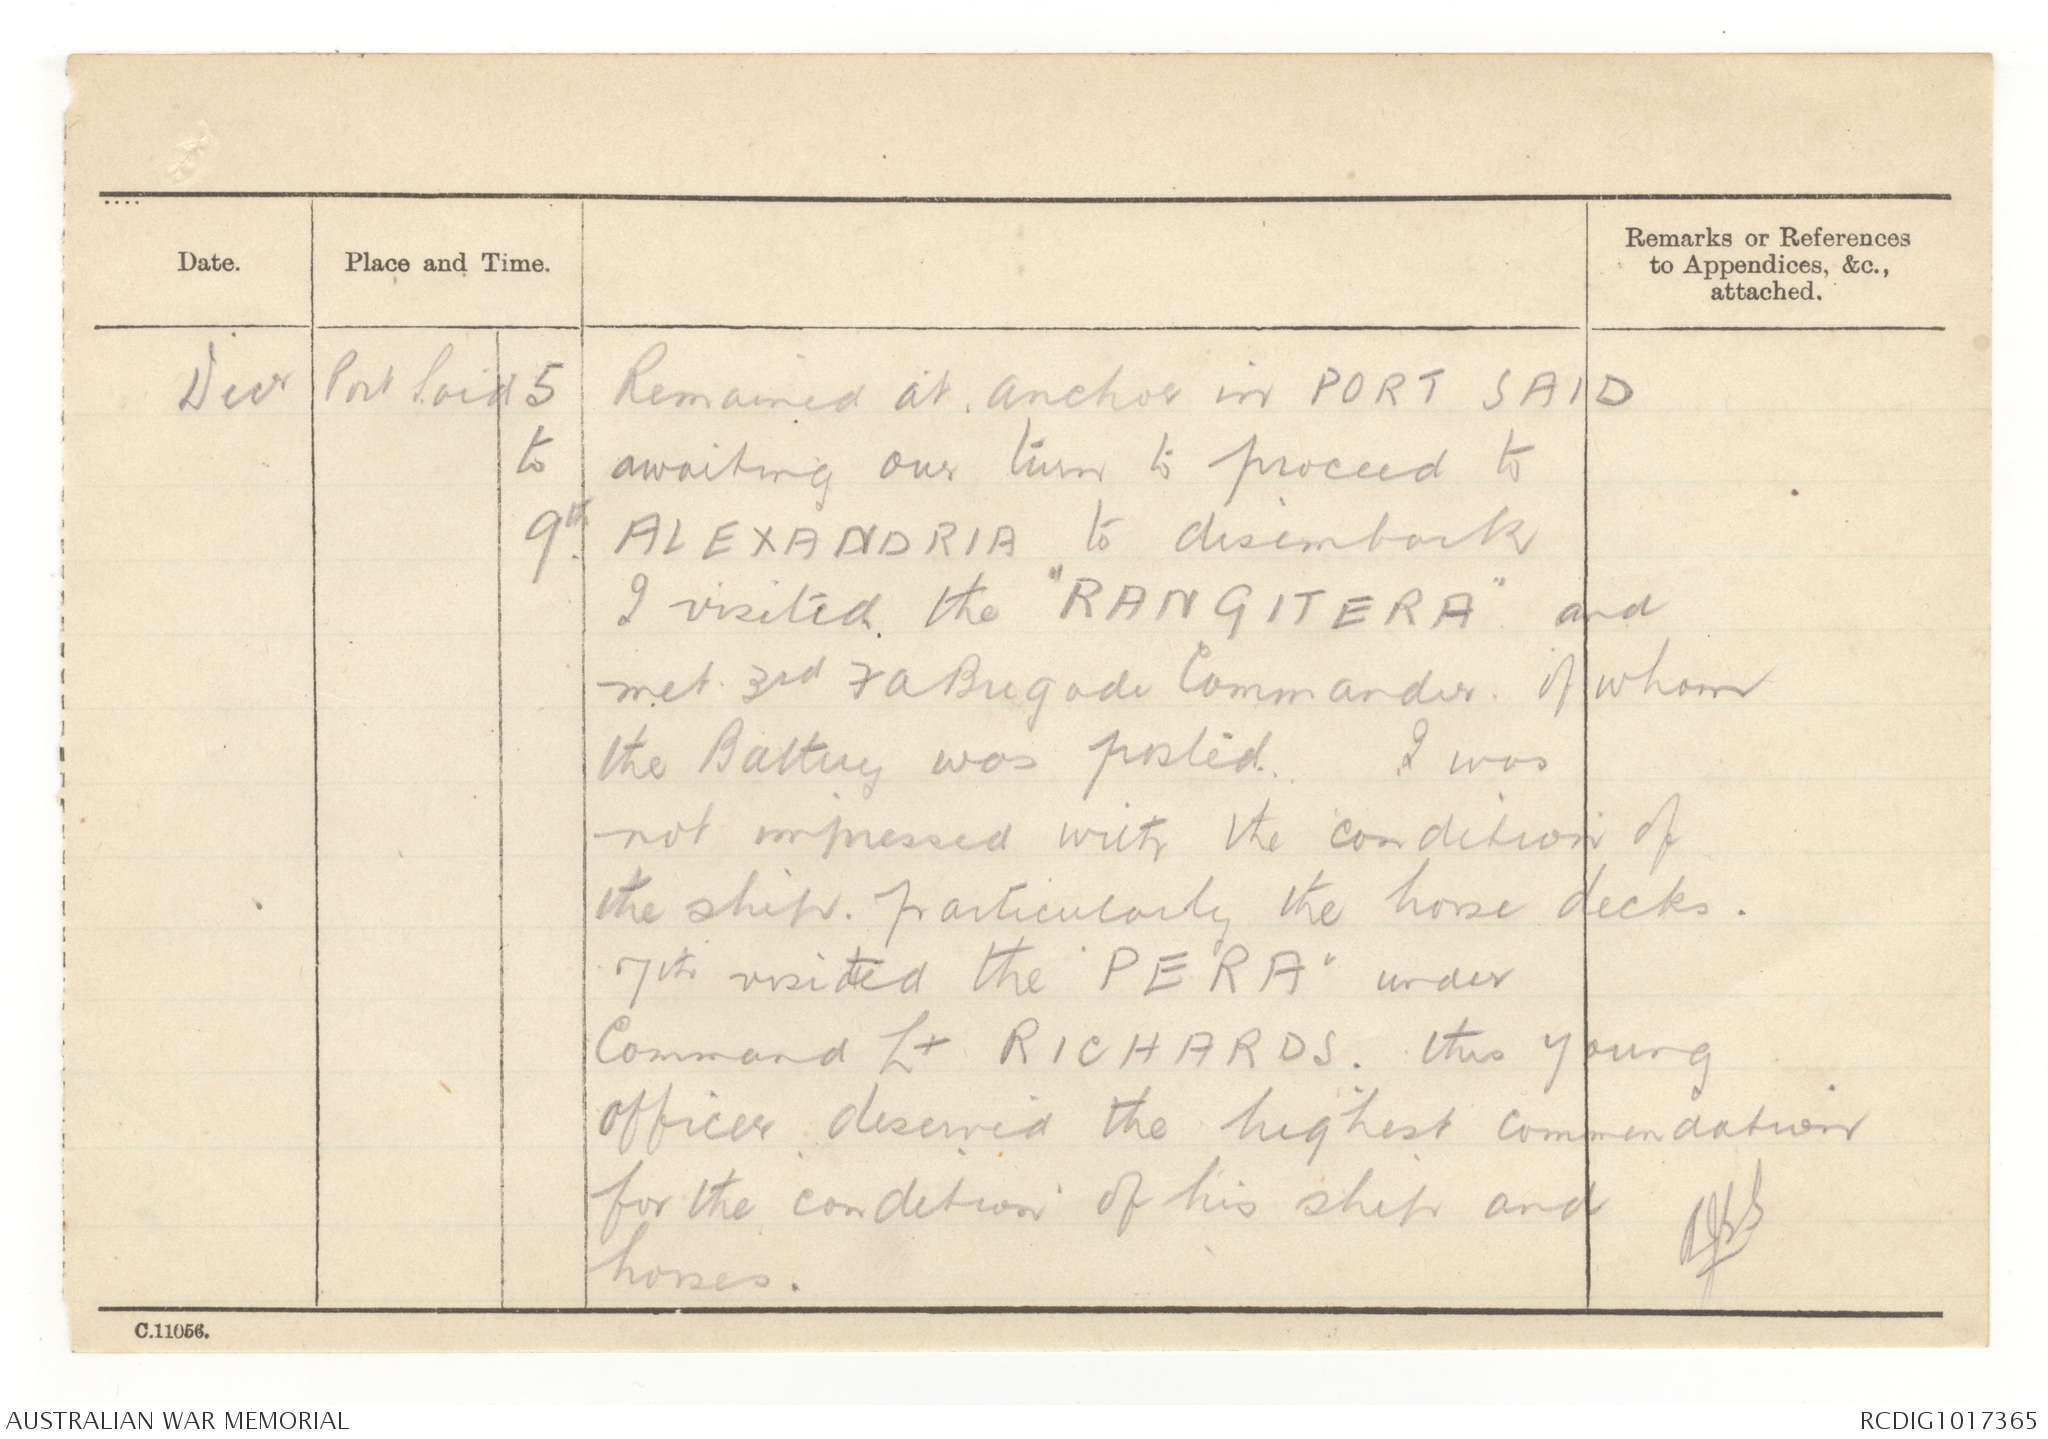 Date.
Place and Time.
Remarks or References
to Appendices, &c.,
attached.
Decr Port Said 5 Remained at anchor in PORT SAID
to awaiting our turn to proceed to
9th. ALEXANDRIA to disembark
I visited the "RANGITERA" and
met 3rd FA Brigade Commander of whom
the Battery was posted. I was
not impressed with the condition of
the ship. particularly the horse decks.
7th visited the "PERA" under
Command Lt RICHARDS. this young
officer deserved the highest commendation
for the condition of his ship and
horses.
C.11056.
AUSTRALIAN WAR MEMORIAL
RCDIG1017365